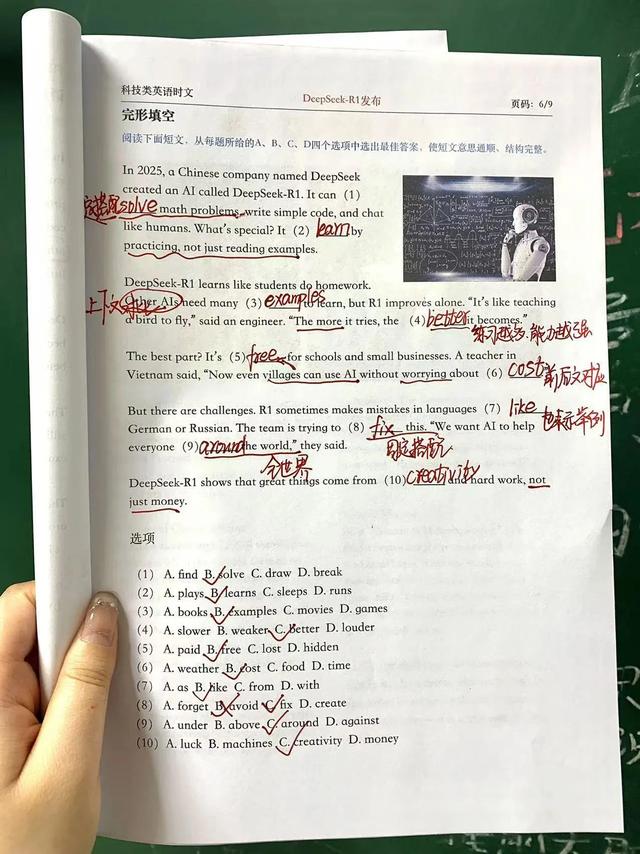 科技类英语时文
DeepSeek-R1发布
页码：6/9
完形填空
阅读下面短文，从每题所给的A、B、C、D四个选项中选出最佳答案，使短文意思通顺、结构完整。
In 2025, a Chinese company named DeepSeek
created an AI called DeepSeek-R1. It can (1)
solve math problems, write simple code, and chat
like humans. What's special? It (2) learn by
practicing, not just reading examples.
DeepSeek-R1 learns like students do homework.
上下文
Other AIs need many (3) examples to learn, but R1 improves alone. "It's like teaching
a bird to fly," said an engineer. "The more it tries, the (4) better it becomes."
练习越多，能力越强
The best part? It's (5) free for schools and small businesses. A teacher in
Vietnam said, "Now even villages can use AI without worrying about (6) cost
前后文对应
But there are challenges. R1 sometimes makes mistakes in languages (7) like
表示举例
German or Russian. The team is trying to (8) fix this. "We want AI to help
固定搭配
everyone (9) around the world," they said.
全世界
DeepSeek-R1 shows that great things come from (10) creativity and hard work, not
just money.
选项
(1) A. find B. solve C. draw D. break
(2) A. plays B. learns C. sleeps D. runs
(3) A. books B. examples C. movies D. games
(4) A. slower B. weaker C. better D. louder
(5) A. paid B. free C. lost D. hidden
(6) A. weather B. cost C. food D. time
(7) A. as B. like C. from D. with
(8) A. forget B. avoid C. fix D. create
(9) A. under B. above C. around D. against
(10) A. luck B. machines C. creativity D. money